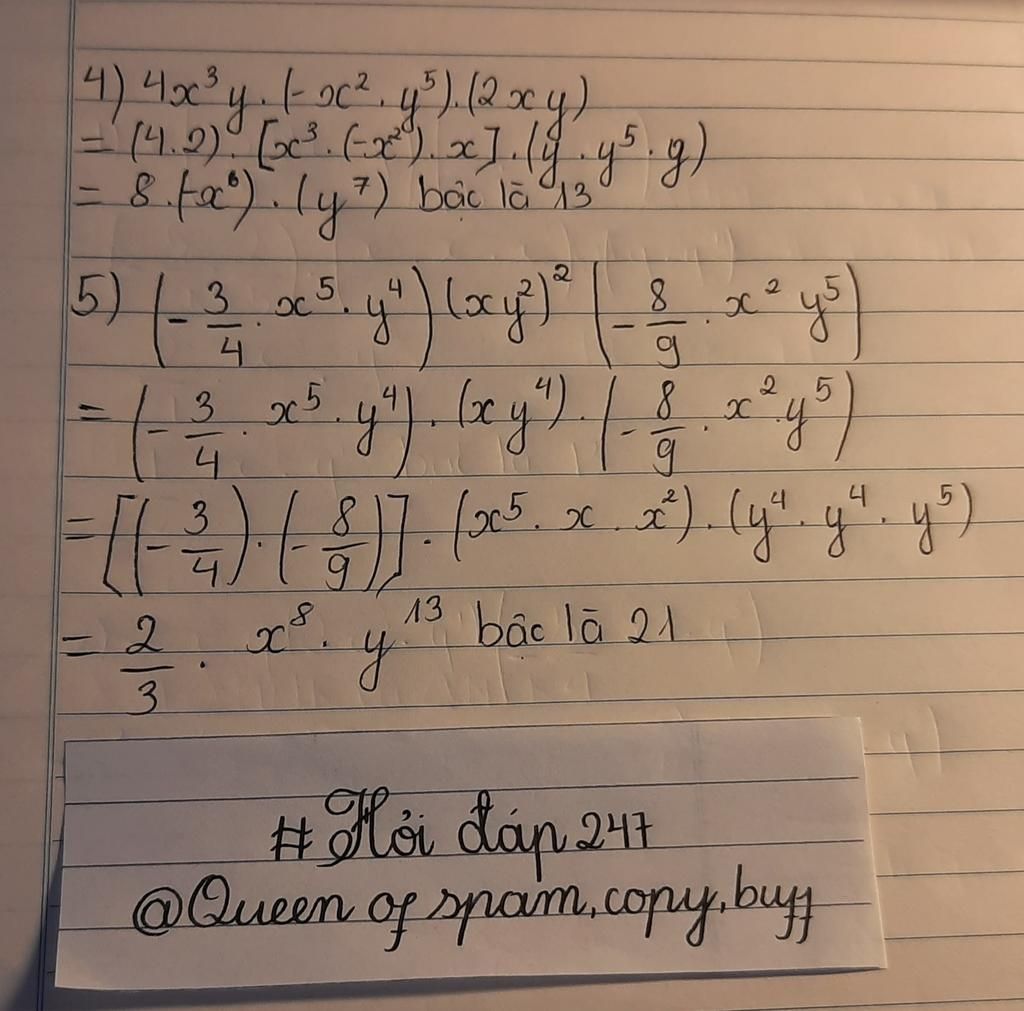 4) 4x³y.(-x².y⁵).(2xy)
= (4.2).[x³.(-x²).x].(y.y⁵.y)
= 8.(-x⁶).(y⁷) bậc là 13
5) (-3/4.x⁵.y⁴)(xy²)²(-8/9.x²y⁵)
= (-3/4.x⁵.y⁴).(xy⁴).(-8/9.x².y⁵)
= [(-3/4).(-8/9)].(x⁵.x.x²).(y⁴.y⁴.y⁵)
= 2/3.x⁸.y¹³ bậc là 21
#Hỏi đáp 247
@Queen of spam,copy,buff